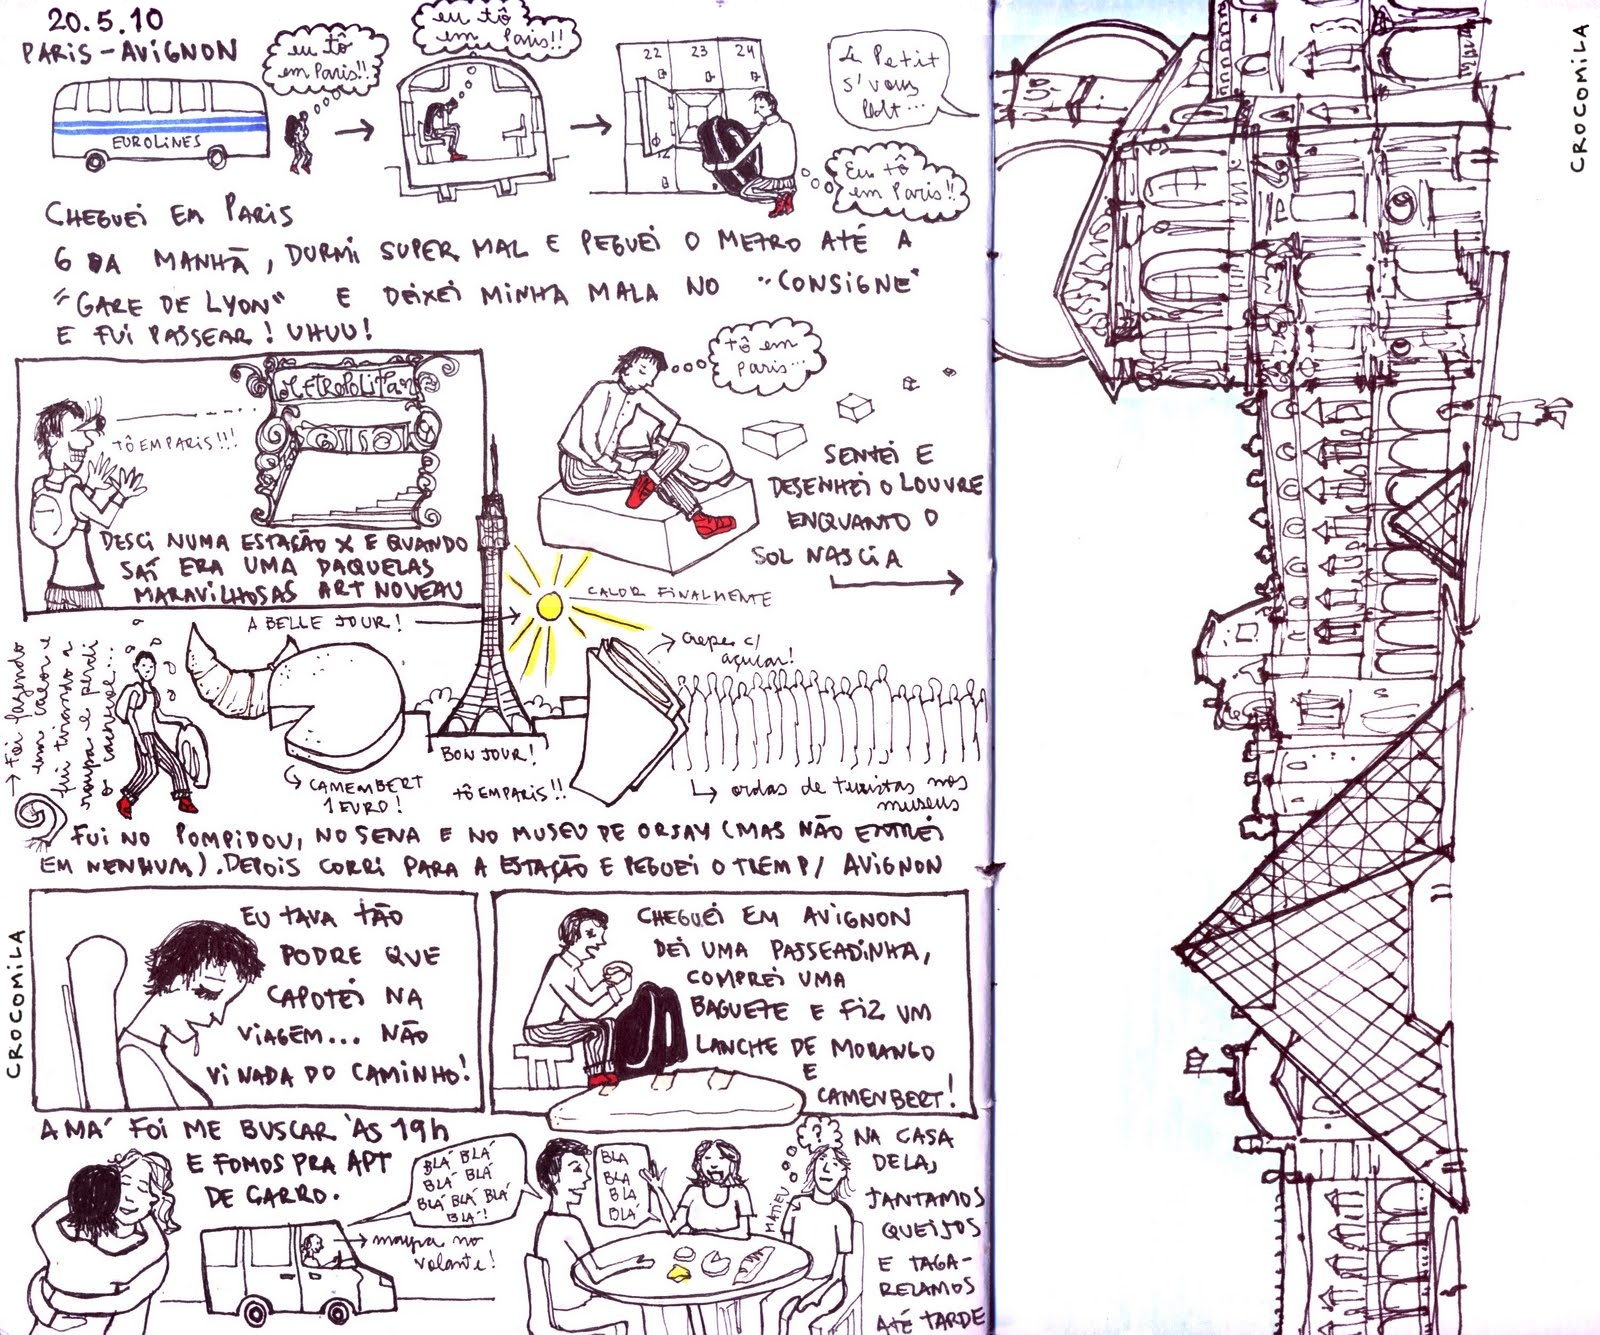 20.5.10
PARIS-AVIGNON
eu tô
em Paris!!
EUROLINES
eu tô
em Paris!!
22 23 24
12
Le Petit
s'vous
Plêt...
Eu tô
em Paris!!
CHEGUEI EM PARIS
6 DA MANHÃ, DORMI SUPER MAL E PEGUEI O METRO ATÉ A
"GARE DE LYON" E DEIXEI MINHA MALA NO "CONSIGNE"
E FUI PASSEAR! UHUU!
METROPOLITAN
TÔ EM PARIS!!!
DESCI NUMA ESTAÇÃO X E QUANDO
SAÍ ERA UMA DAQUELAS
MARAVILHOSAS ART NOVEAU
tô em
paris...
SENTEI E
DESENHEI O LOUVRE
ENQUANTO O
SOL NASCIA
CALOR FINALMENTE
A BELLE JOUR!
→ Foi fazendo
um calor e
fui tirando a
roupa e perdi
o cachecol...
CAMEMBERT
1 EURO!
BON JOUR!
TÔ EM PARIS!!
crepes c/
açúcar!
ordas de turistas nos
museus
FUI NO POMPIDOU, NO SENA E NO MUSEU DE ORSAY (MAS NÃO ENTREI
EM NENHUM). DEPOIS CORRI PARA A ESTAÇÃO E PEGUEI O TREM P/ AVIGNON
EU TAVA TÃO
PODRE QUE
CAPOTEI NA
VIAGEM... NÃO
VI NADA DO CAMINHO!
CHEGUEI EM AVIGNON
DEI UMA PASSEADINHA,
COMPREI UMA
BAGUETE E FIZ UM
LANCHE DE MORANGO
E
CAMENBERT!
CROCOMILA
A MÁ FOI ME BUSCAR ÀS 19h
E FOMOS PRA APT
DE CARRO.
BLÁ BLÁ
BLÁ BLÁ
BLÁ BLÁ BLÁ
BLÁ!
→ mayra no
volante!
BLA
BLA
BLA
BLÁ!
?
MATIEU
NA CASA
DELA,
JANTAMOS
QUEIJOS
E TAGA-
RELAMOS
ATÉ TARDE
CROCOMILA